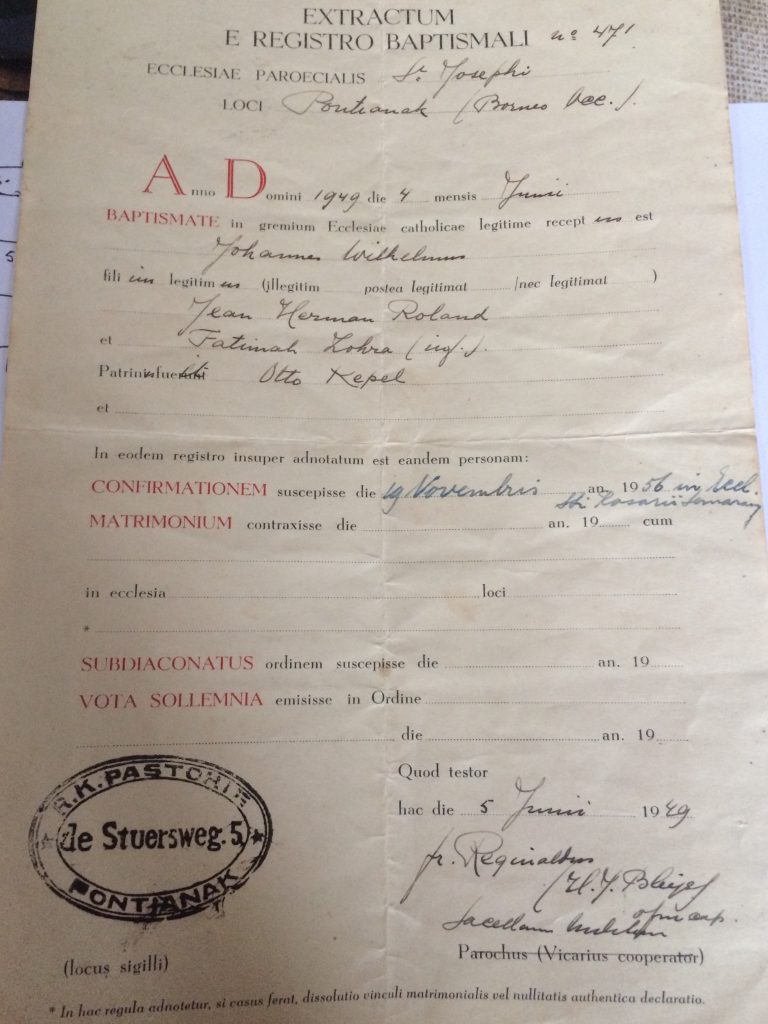 EXTRACTUM
E REGISTRO BAPTISMALI nº 471
ECCLESIAE PAROECIALIS St Josephi
LOCI Pontianak (Borneo Occ.).
Anno Domini 1949 die 4 mensis Junii
BAPTISMATE in gremium Ecclesiae catholicae legitime receptus est
Johannes Wilhelmus
filius legitimus (illegitim postea legitimat /nec legitimat )
Jean Herman Roland
et Fatimah Lohra (inf.).
Patrinus fuit Otto Kepel
et
In eodem registro insuper adnotatum est eandem personam:
CONFIRMATIONEM suscepisse die 19 Novembris an. 1956 in Eccl.
Sti Rosarii Semarang
MATRIMONIUM contraxisse die an. 19 cum
in ecclesia loci
*
SUBDIACONATUS ordinem suscepisse die an. 19
VOTA SOLLEMNIA emisisse in Ordine
die an. 19
Quod testor
hac die 5 Junii 1949
R.K. PASTORIE
de Stuersweg. 5
PONTIANAK
fr. Reginaldus
ofm cap.
Parochus (Vicarius cooperator)
(locus sigilli)
* In hac regula adnotetur, si casus ferat, dissolutio vinculi matrimonialis vel nullitatis authentica declaratio.